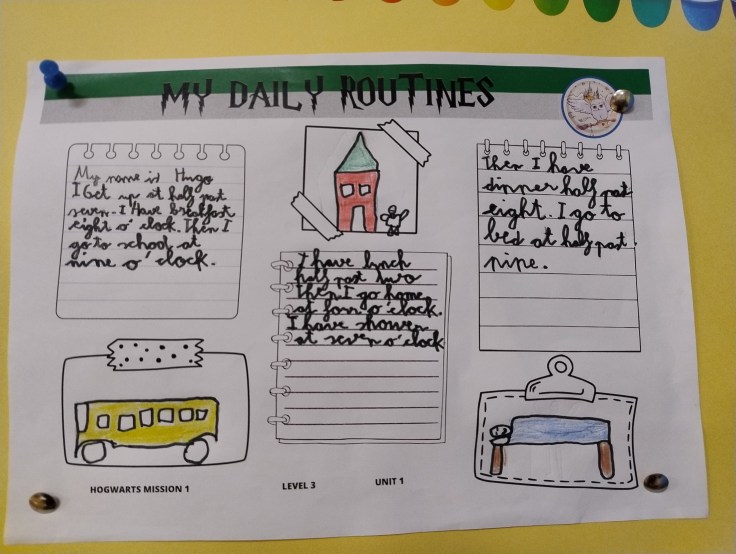 MY DAILY ROUTINES
My name is Hugo
I Get up at half past
seven. I Have breakfast
eight o'clock. Then I
go to school at
nine o'clock.
I have lynch
half past two
Then I go home
at four o'clock.
I have shower
at seven o'clock
Then I have
dinner half past
eight. I go to
bed at half past
nine.
HOGWARTS MISSION 1
LEVEL 3
UNIT 1